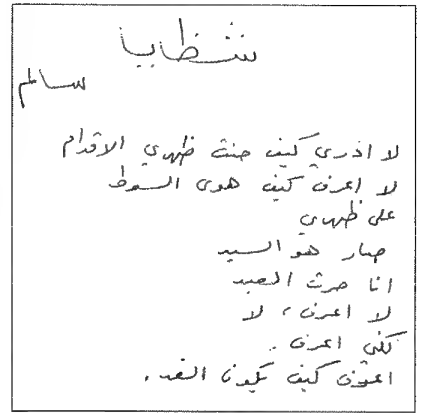 شظايا
سالم
لا ادري كيف حنت ظهري الاقدام
لا اعرف كيف هوى السوط
على ظهري
صار هو السيد
انا صرت العبد
لا اعرف، لا
لكني اعرف.
اعرف كيف يكون الغد.